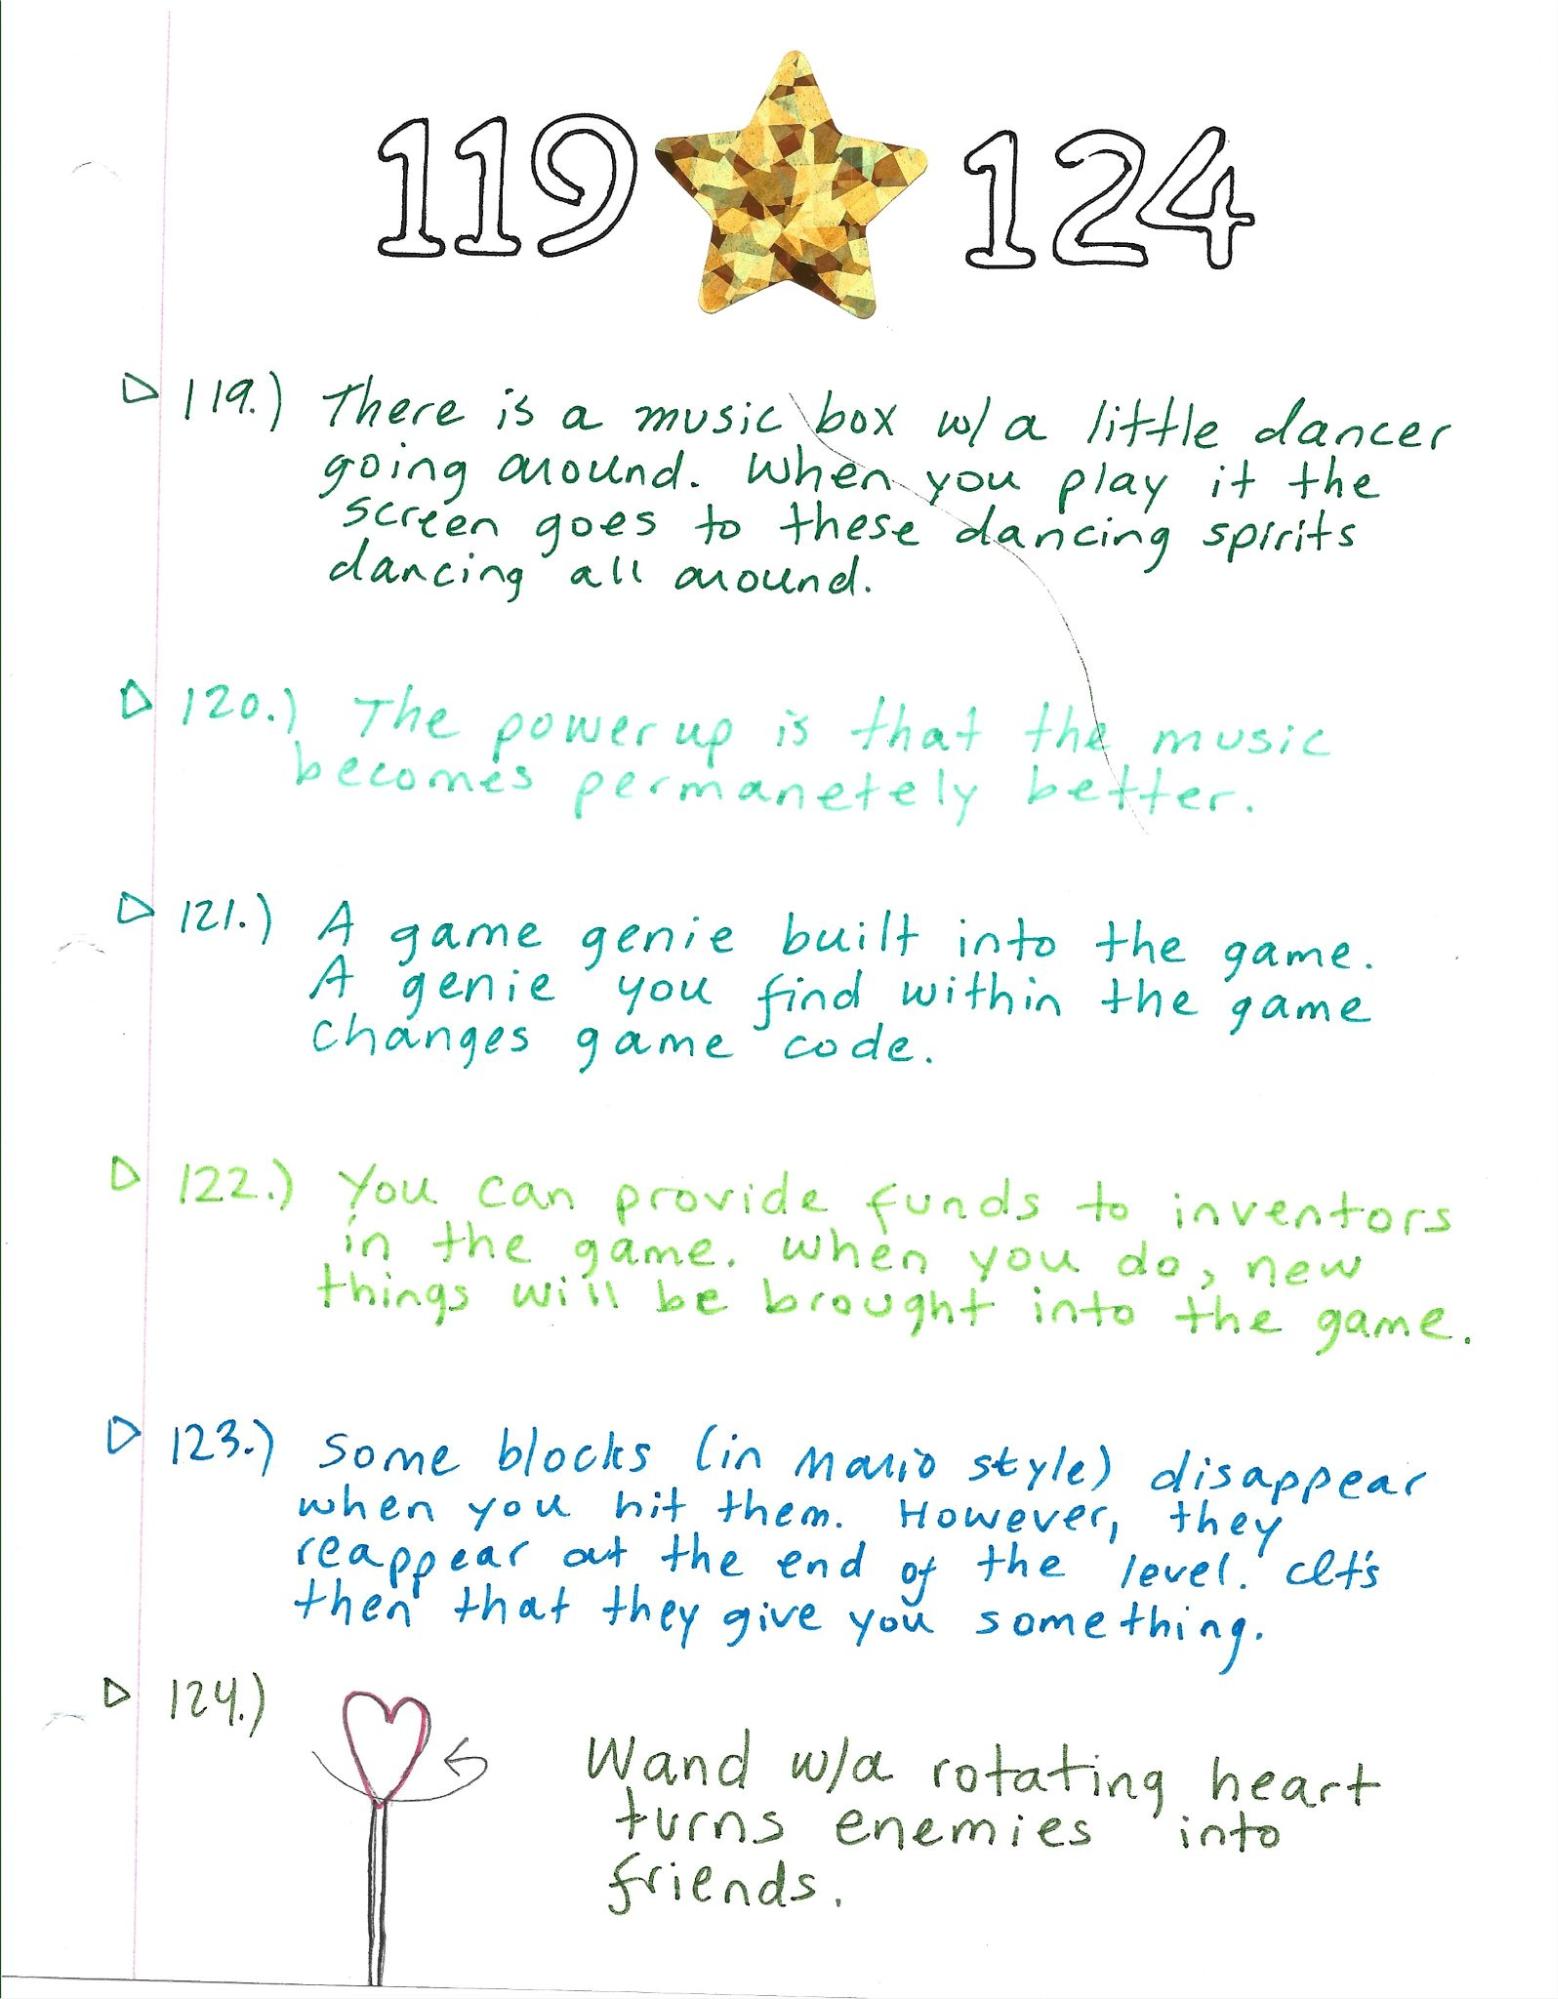 119 124
119.) There is a music box w/ a little dancer
going around. When you play it the
screen goes to these dancing spirits
dancing all around.
120.) The power up is that the music
becomes permanetely better.
121.) A game genie built into the game.
A genie you find within the game
changes game code.
122.) You can provide funds to inventors
in the game. When you do, new
things will be brought into the game.
123.) Some blocks (in Mario style) disappear
when you hit them. However, they
reappear at the end of the level. It's
then that they give you something.
124.) Wand w/a rotating heart
turns enemies into
friends.